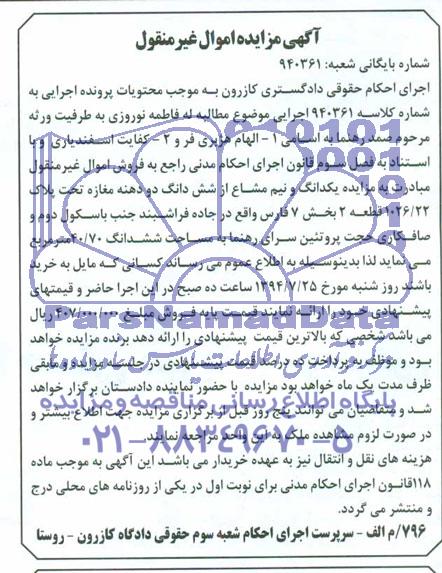 آگهی مزایده اموال غیر منقول
شماره بایگانی شعبه: ۹۴۰۳۶۱
اجرای احکام حقوقی دادگستری کازرون به موجب محتویات پرونده اجرایی به
شماره کلاسه ۹۴۰۳۶۱ اجرایی موضوع مطالبه له فاطمه نوروزی به طرفیت ورثه
مرحوم صمد رهنما به اسامی ۱ - الهام هژبری فر و ۲ - کفایت اسفندیاری و با
استناد به فصل سوم قانون اجرای احکام مدنی راجع به فروش اموال غیر منقول
مبادرت به مزایده یکدانگ و نیم مشاع از شش دانگ دو دهنه مغازه تحت پلاک
۱۰۲۶/۲۲ قطعه ۲ بخش ۷ فارس واقع در جاده فراشبند جنب باسکول دوم و
صافکاری حجت پروتئین سرای رهنما به مساحت ششدانگ ۴۰/۷۰ مترمربع
می نماید لذا بدینوسیله به اطلاع عموم می رساند کسانی که مایل به خرید
باشند روز شنبه مورخ ۱۳۹۴/۷/۲۵ ساعت ده صبح در این اجرا حاضر و قیمتهای
پیشنهادی خود را ارائه نمایند قیمت پایه فروش مبلغ ۴۰۷/۰۰۰/۰۰۰ ریال
می باشد شخصی که بالاترین قیمت پیشنهادی را ارائه دهد برنده مزایده خواهد
بود و موظف به پرداخت ده درصد قیمت پیشنهادی در جلسه مزایده و مابقی
ظرف مدت یک ماه خواهد بود مزایده با حضور نماینده دادستان برگزار خواهد
شد و متقاضیان می توانند پنج روز قبل از برگزاری مزایده جهت اطلاع بیشتر و
در صورت لزوم مشاهده ملک به این واحد مراجعه نمایند.
هزینه های نقل و انتقال نیز به عهده خریدار می باشد این آگهی به موجب ماده
۱۱۸ قانون اجرای احکام مدنی برای نوبت اول در یکی از روزنامه های محلی درج
و منتشر می گردد.
۷۹۶/م الف - سرپرست اجرای احکام شعبه سوم حقوقی دادگاه کازرون - روستا
ParsNamadData
پایگاه اطلاع رسانی مناقصه و مزایده
۰۲۱-۸۸۳۴۹۶۷۰-۵